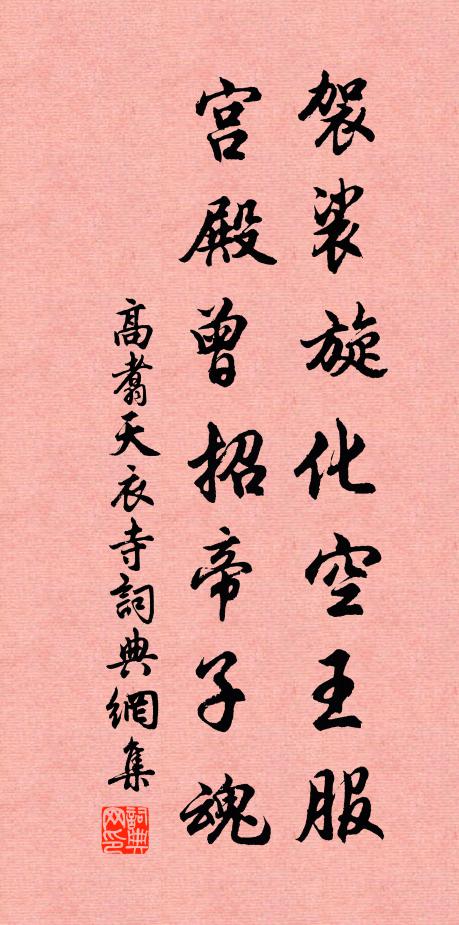 袈裟旋化空王服
宮殿曾招帝子魂
高翥天衣寺詞典網集
詞典网印